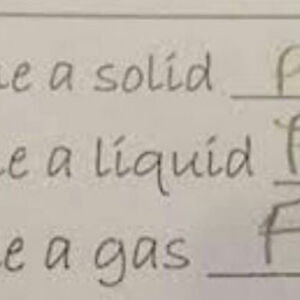 e a solid P
e a liquid
e a gas F